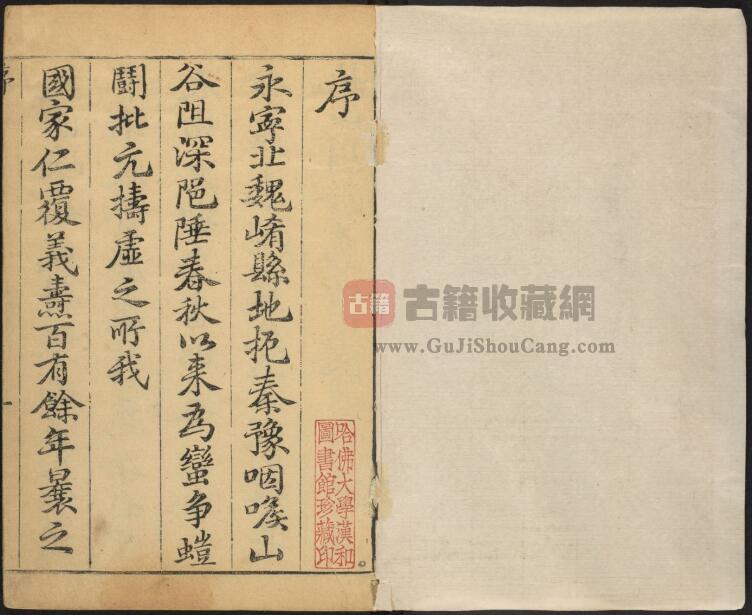 序
永寧北魏崤縣地扼秦豫咽喉山
谷阻深阨陲春秋以來為蠻争螘
鬪批亢擣虛之所我
國家仁覆義燾百有餘年曩之
序
一
哈佛大學漢和
圖書館珍藏印
古籍
古籍收藏網
www.GuJiShouCang.com